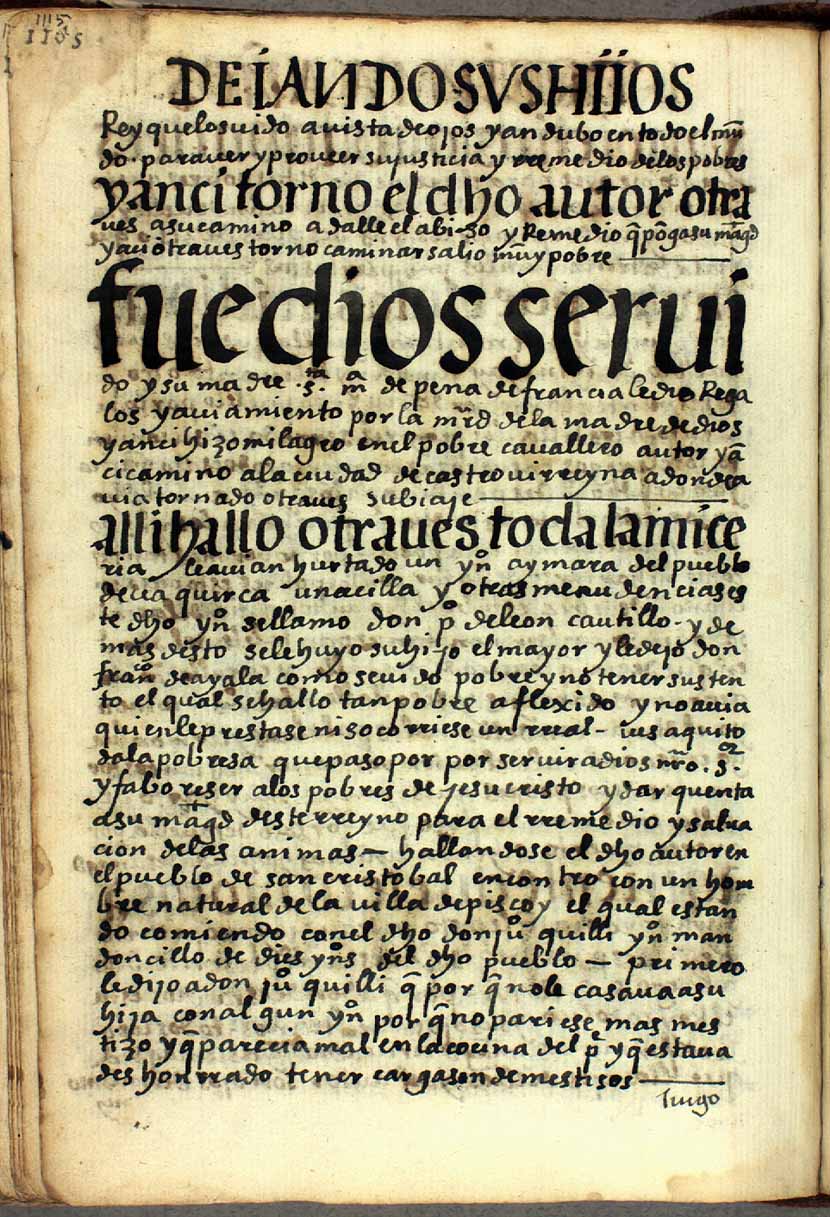 1115
1105
DEJANDO SVS HIJOS
Rey que los uido a uista de ojos y andubo en todo el mũ
do. para uer y proueer su justicia y rremedio de los pobres
y anci torno el dho autor otra
ues a su camino a dalle el abizo y Remedio q̃ põga su mag.d
y aci otra ues torno caminar salio muy pobre
fue dios serui
do y su madre .s.ta m.a de pena de francia le dio Rega
los y auiamiento por la mrd de la madre de dios
y anci hizo milagro en el pobre cauallero autor y ã
ci camino a la ciudad de castrouirreyna adonde a
uia tornado otra ues su biaje
alli hallo otra ues toda la mice
ria le auian hurtado un yn.o aymara del pueblo
de uaquirca una cilla y otras menudencias es
te dho yn.o se llamo don p.o de leon cautillo. y de
mas desto se le huyo su hijo el mayor y le dejo don
fran.co de ayala como se uido pobre y no tener susten
to el qual se hallo tan pobre aflexido y no auia
quien le prestase ni socorriese un rreal - ues aqui to
da la pobresa que paso por por seruir a dios nr̃o .s.or
y faboreser a los pobres de jesucristo y dar quenta
a su mag.d deste rreyno para el rremedio y salua
cion de las animas — hallandose el dho autor en
el pueblo de san cristobal encontro con un hom
bre natural de la uilla de pisco y el qual estan
do comiendo con el dho don ju.o quilli yn.o man
doncillo de dies yn.os del dho pueblo — primero
le dijo a don ju.o quilli q̃ por q̃ no le casaua a su
hija con algun yn.o por q̃ no pariese mas mes
tizo y q̃ parecia mal en la cocina del p.e y q̃ estaua
deshonrrado tener cargason de mestisos
luego